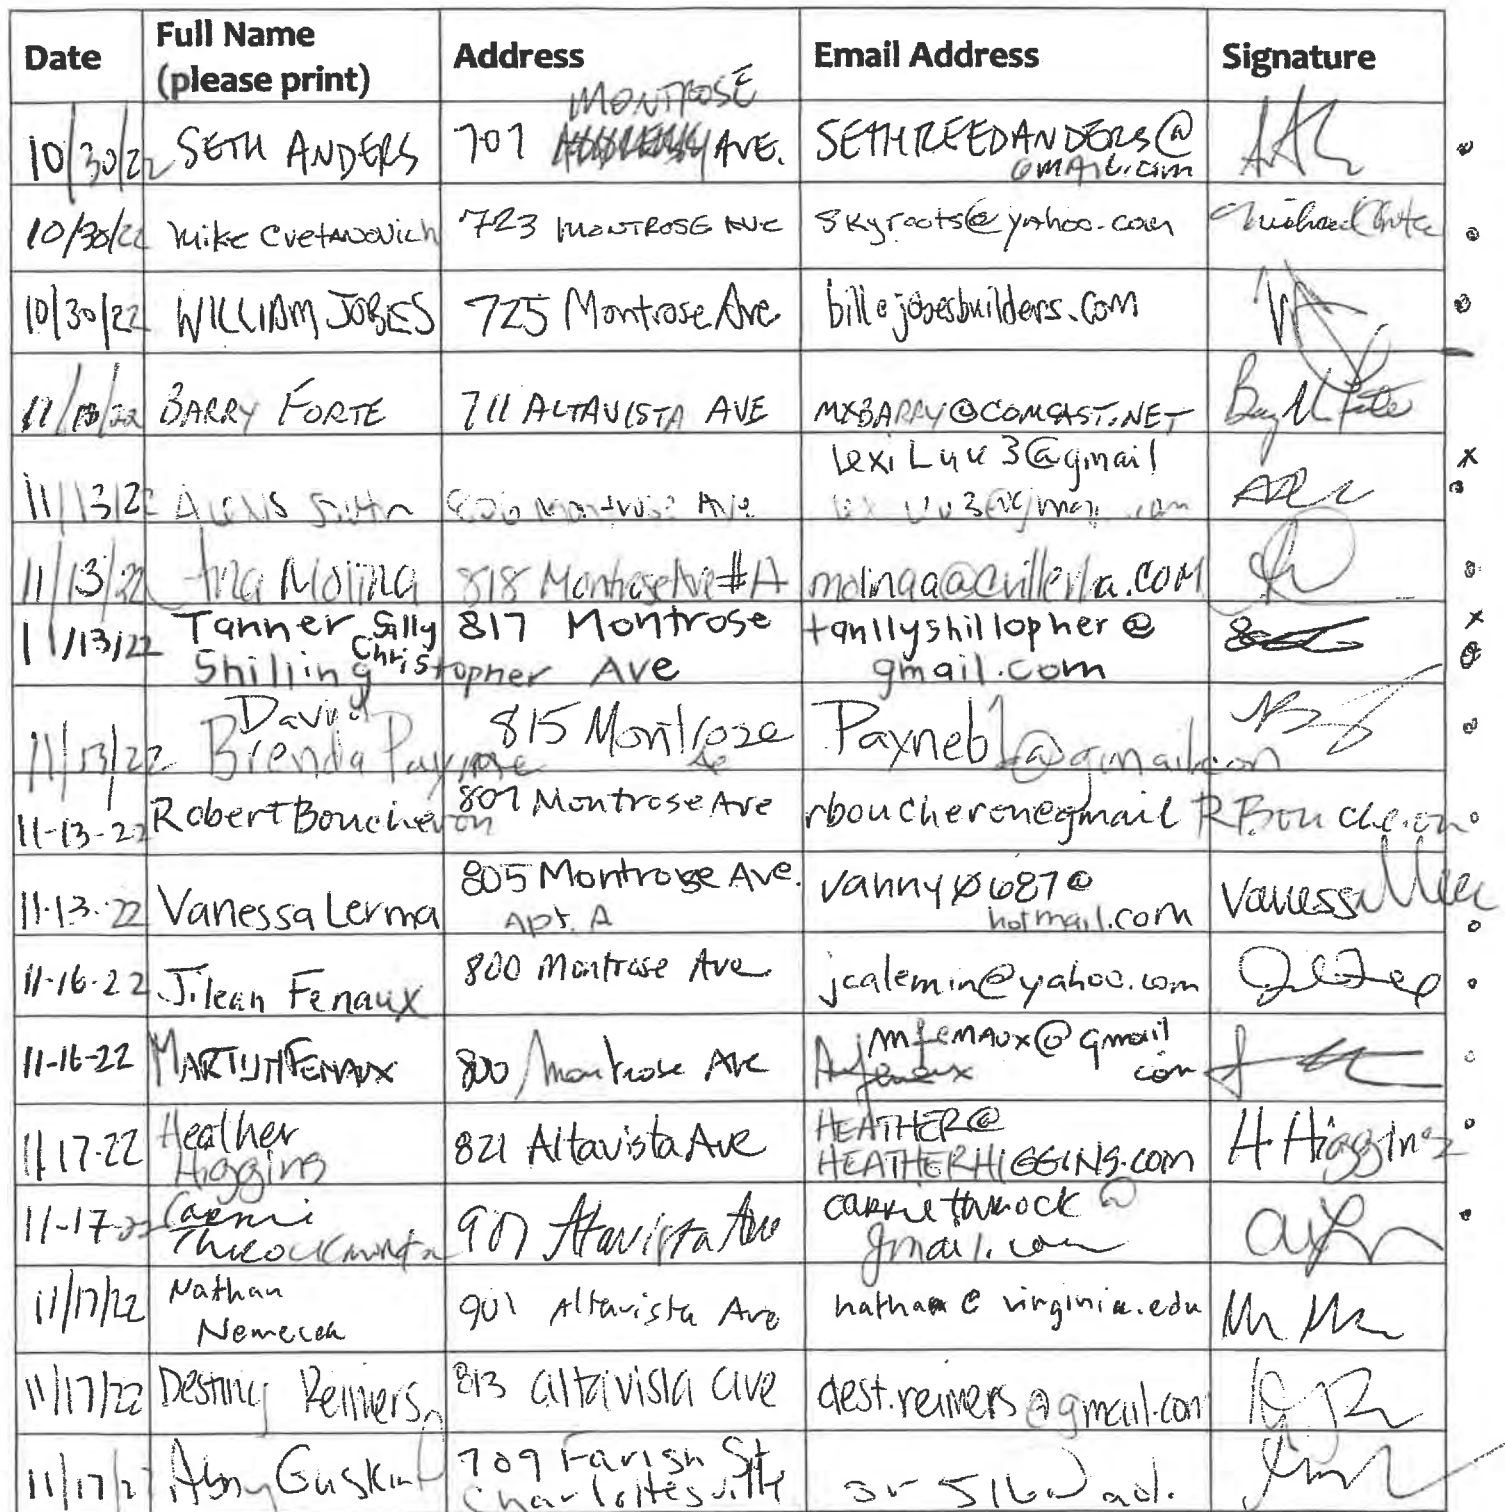 Date Full Name (please print) Address Email Address Signature
10/30/22 SETH ANDERS 707 MONTROSE AVE. SETHREEDANDERS@ GMAIL.com
10/30/22 Mike Cvetanovich 723 MONTROSE AVE skyroots@yahoo.com
10/30/22 WILLIAM JOBES 725 Montrose Ave bill@jobesbuilders.com
11/13/22 BARRY FORTE 711 ALTAVISTA AVE MXBARRY@COMCAST.NET
11/13/22 Montrose Ave @gmail
11/13/22 Ana Molina 818 Montrose Ave #A molinaa@cvilleva.COM
11/13/22 Tanner Silly Christopher Shilling 817 Montrose Ave tanllyshillopher@ gmail.com
11/13/22 David Brenda Payne 815 Montrose Payneb1@gmail.com
11-13-22 Robert Boucheron 807 Montrose Ave rboucheron@gmail RBoucheron
11-13-22 Vanessa Lerma 805 Montrose Ave. Apt. A vanny0687@ hotmail.com Vanessa
11-16-22 Jilean Fenaux 800 Montrose Ave jcalemin@yahoo.com
11-16-22 MARTIJN FENAUX 800 Montrose Ave mfenaux@gmail com
11-17-22 Heather Higgins 821 Altavista Ave HEATHER@ HEATHERHIGGINS.com H Higgins
11-17-22 Carrie Altavista Ave gmail.com
11/17/22 Nathan Nemecek 901 Altavista Ave nathan@virginia.edu
11/17/22 Destiny Reimers 813 altavista ave dest.reimers@gmail.com
11/17/2 Abby Guskind 709 Farish St Charlottesville